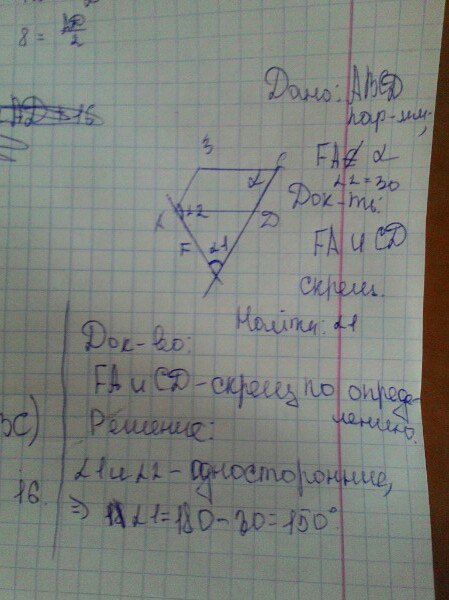 8 = AD/2
AD = 16
Дано: ABCD
пар-мм,
FA ⊄ α
∠2 = 30
Док-ть:
FA и CD
скрещ.
Найти: ∠1
B
C
α
A
∠2
D
F
∠1
Док-во:
FA и CD - скрещ по опреде-
лению.
ВС)
Решение:
∠1 и ∠2 - односторонние,
16.
⇒ ∠1 = 180 - 30 = 150°.